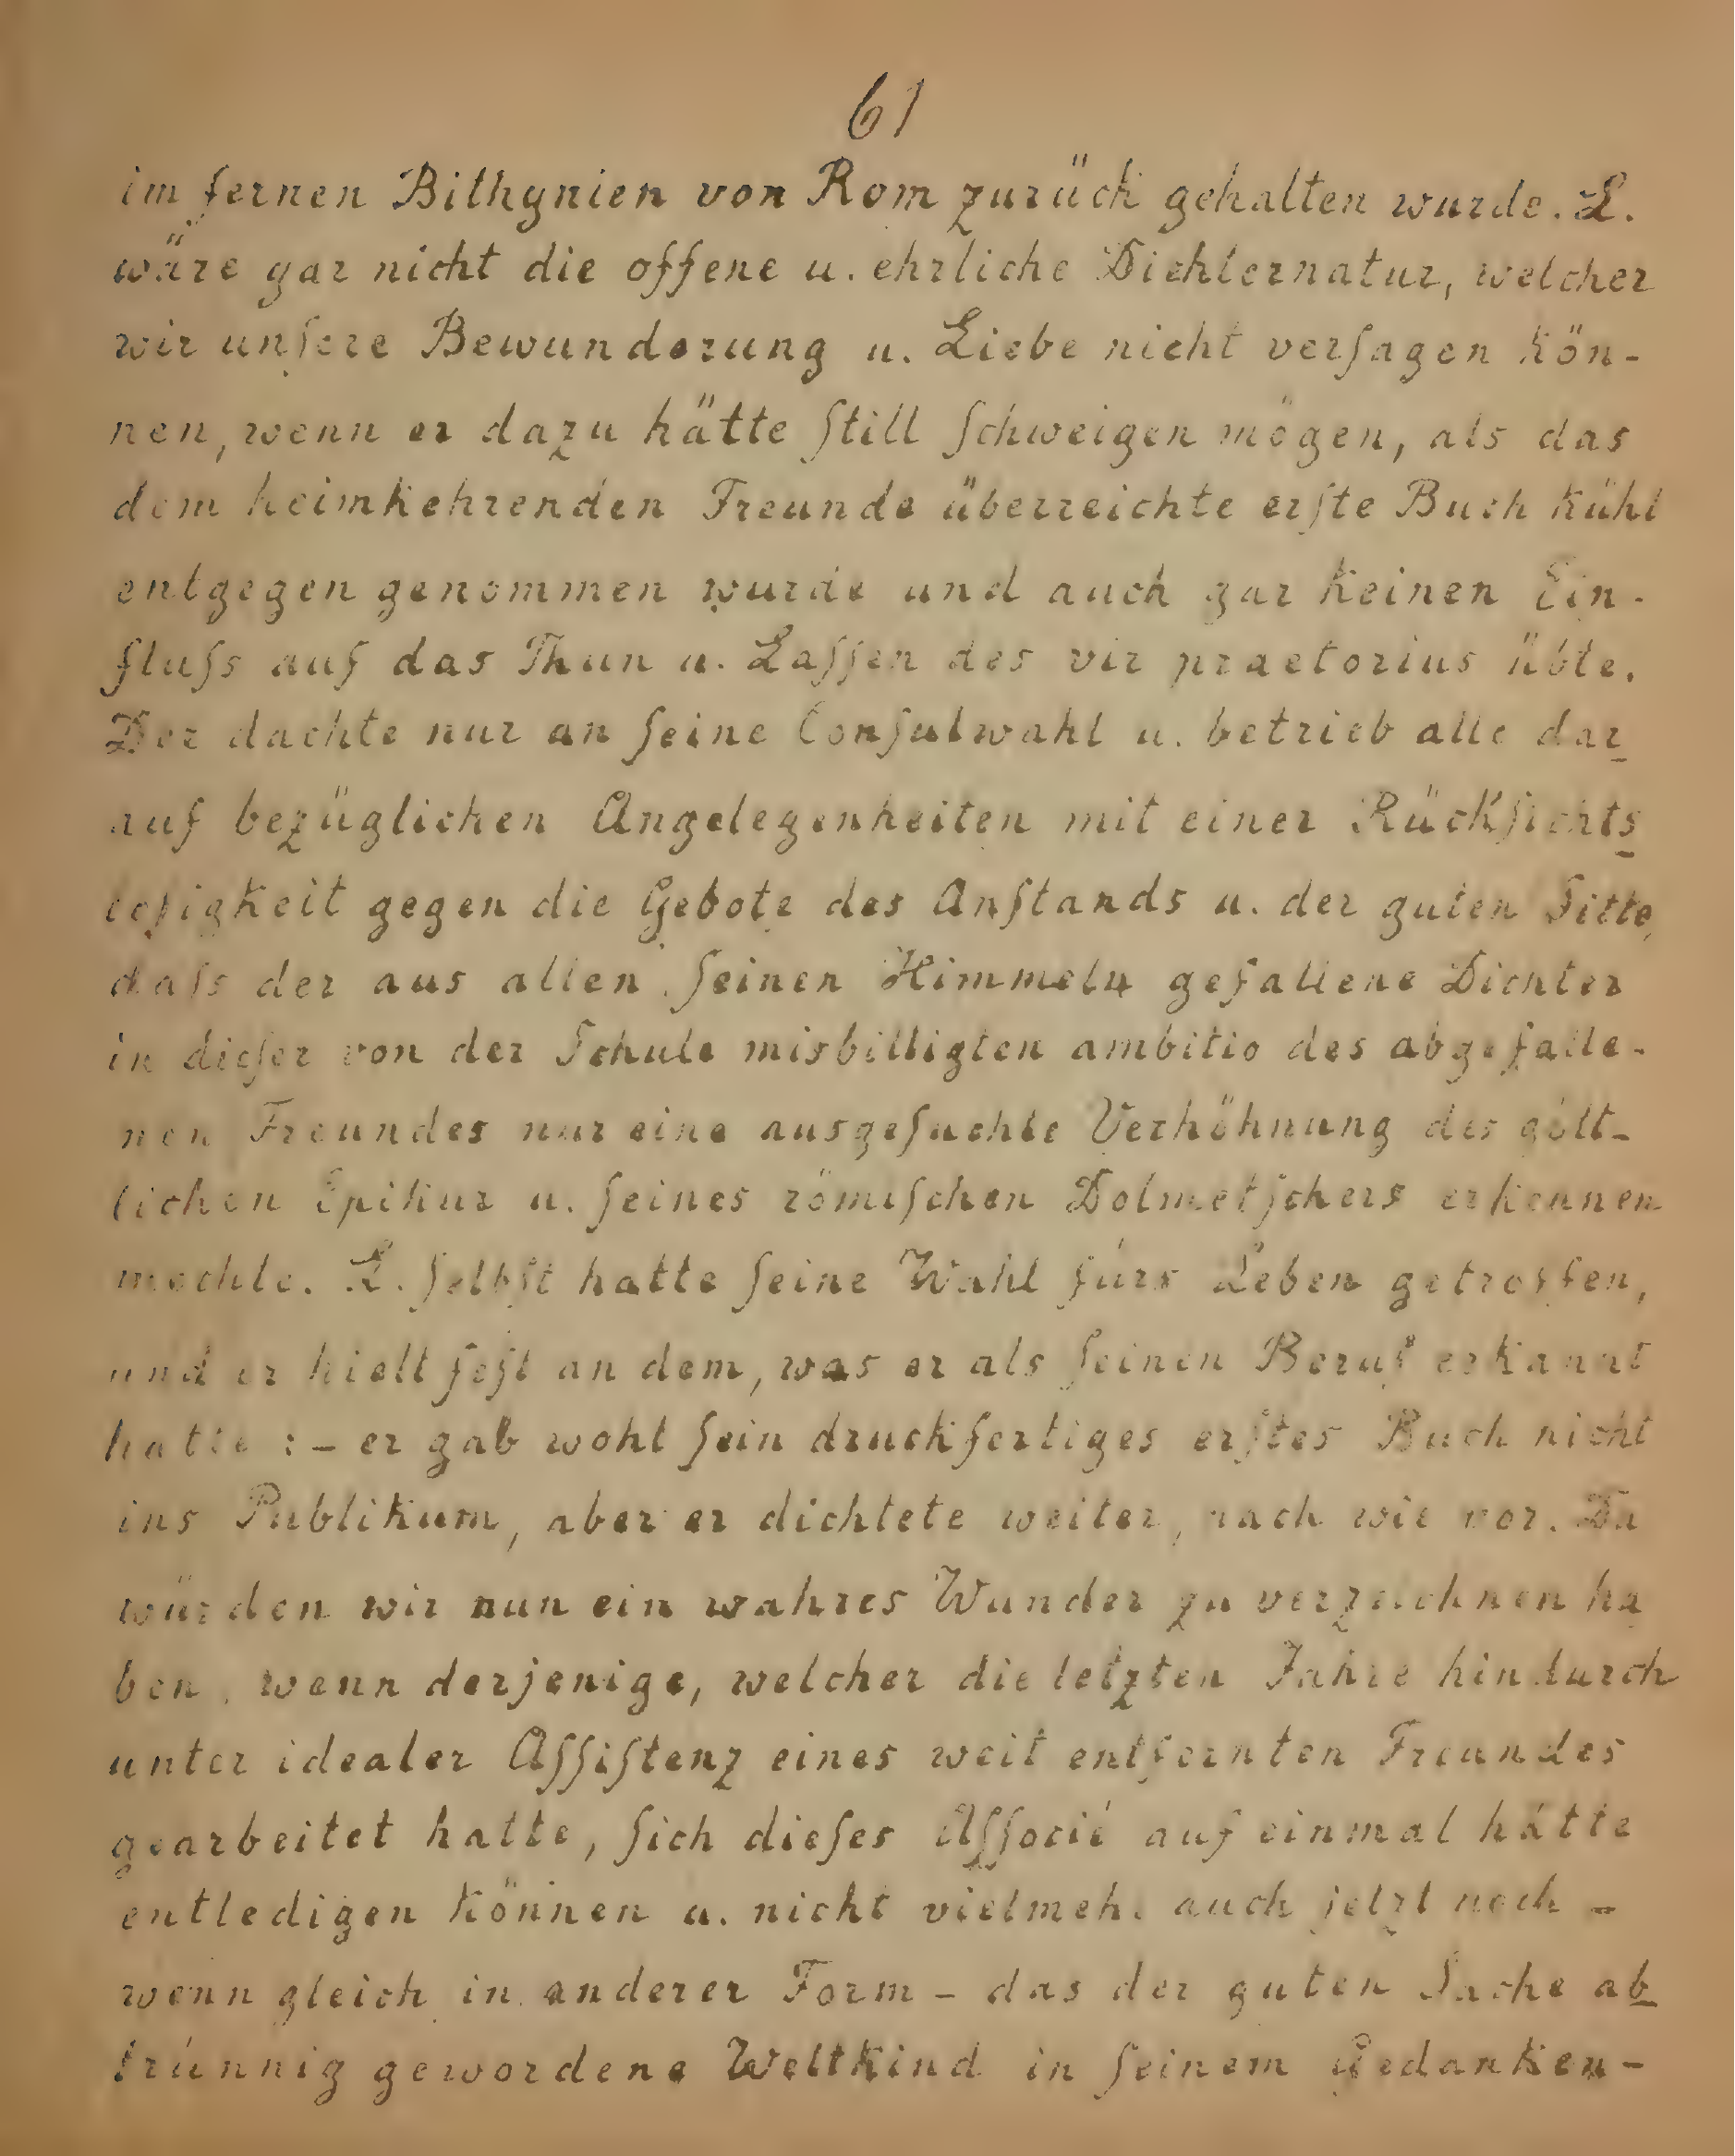 61
im fernen Bithynien von Rom zurück gehalten wurde. L.
wäre gar nicht die offene u. ehrliche Dichternatur, welcher
wir unſere Bewunderung u. Liebe nicht verſagen kön-
nen, wenn er dazu hätte ſtill ſchweigen mögen, als das
dem heimkehrenden Freunde überreichte erſte Buch kühl
entgegen genommen wurde und auch gar keinen Ein-
fluſs auf das Thun u. Laſſen des vir praetorius übte.
Der dachte nur an ſeine Conſulwahl u. betrieb alle dar
auf bezüglichen Angelegenheiten mit einer Rückſichts
loſigkeit gegen die Gebote des Anſtands u. der guten Sitte,
daſs der aus allen ſeinen Himmeln gefallene Dichter
in dieſer von der Schule misbilligten ambitio des abgefalle-
nen Freundes nur eine ausgeſuchte Verhöhnung des gött-
lichen Epikur u. ſeines römiſchen Dolmetſchers erkennen
mochte. L. ſelbſt hatte ſeine Wahl fürs Leben getroffen,
und er hielt feſt an dem, was er als ſeinen Beruf erkannt
hatte: – er gab wohl ſein druckfertiges erſtes Buch nicht
ins Publikum, aber er dichtete weiter, nach wie vor. Da
würden wir nun ein wahres Wunder zu verzeichnen ha
ben, wenn derjenige, welcher die letzten Jahre hindurch
unter idealer Aſſiſtenz eines weit entfernten Freundes
gearbeitet hatte, ſich dieſes Aſſocié auf einmal hätte
entledigen können u. nicht vielmehr auch jetzt noch –
wenn gleich in anderer Form – das der guten Sache ab
trünnig gewordene Weltkind in ſeinem Gedanken-